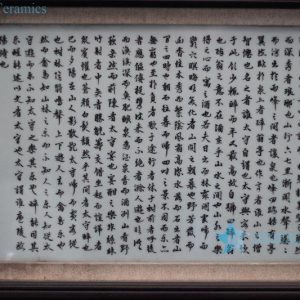 Ceramics
深秀者瑯琊也山行六七里漸聞水聲潺
而瀉出於兩峰之間者釀泉也峰回路轉有亭
翼然臨於泉上者醉翁亭也作亭者誰山之僧
智僊也名之者誰太守自謂也太守與客來飲
於此飲少輒醉而年又最高故自號曰醉翁也
醉翁之意不在酒在乎山水之間也山水之樂
得之心而寓之酒也若夫日出而林霏開雲歸而巖穴
暝晦明變化者山間之朝暮也野芳發而
幽香佳木秀而繁陰風霜高潔水落而石出者山
間之四時也朝而往暮而歸四時之景不同而樂亦
無窮也至於負者歌於途行者休於樹前者呼後
者應傴僂提攜往來而不絕者滁人遊也臨溪
而漁溪深而魚肥釀泉為酒泉香而酒洌山肴野
蔌雜然而前陳者太守宴也宴酣之樂非絲非
竹射者中弈者勝觥籌交錯起坐而諠譁者
眾賓懽也蒼顏白髮頹然乎其間者太守醉也
已而夕陽在山人影散亂太守歸而賓客從
也樹林陰翳鳴聲上下遊人去而禽鳥樂也
然而禽鳥知山林之樂而不知人之樂人知從太
守遊而樂而不知太守之樂其樂也醉能同其
樂醒能述以文者太守也太守謂誰廬陵歐
陽修也